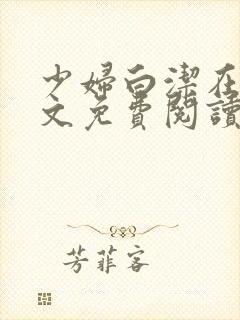 少婦白潔在
文免費閱讀
芳菲客